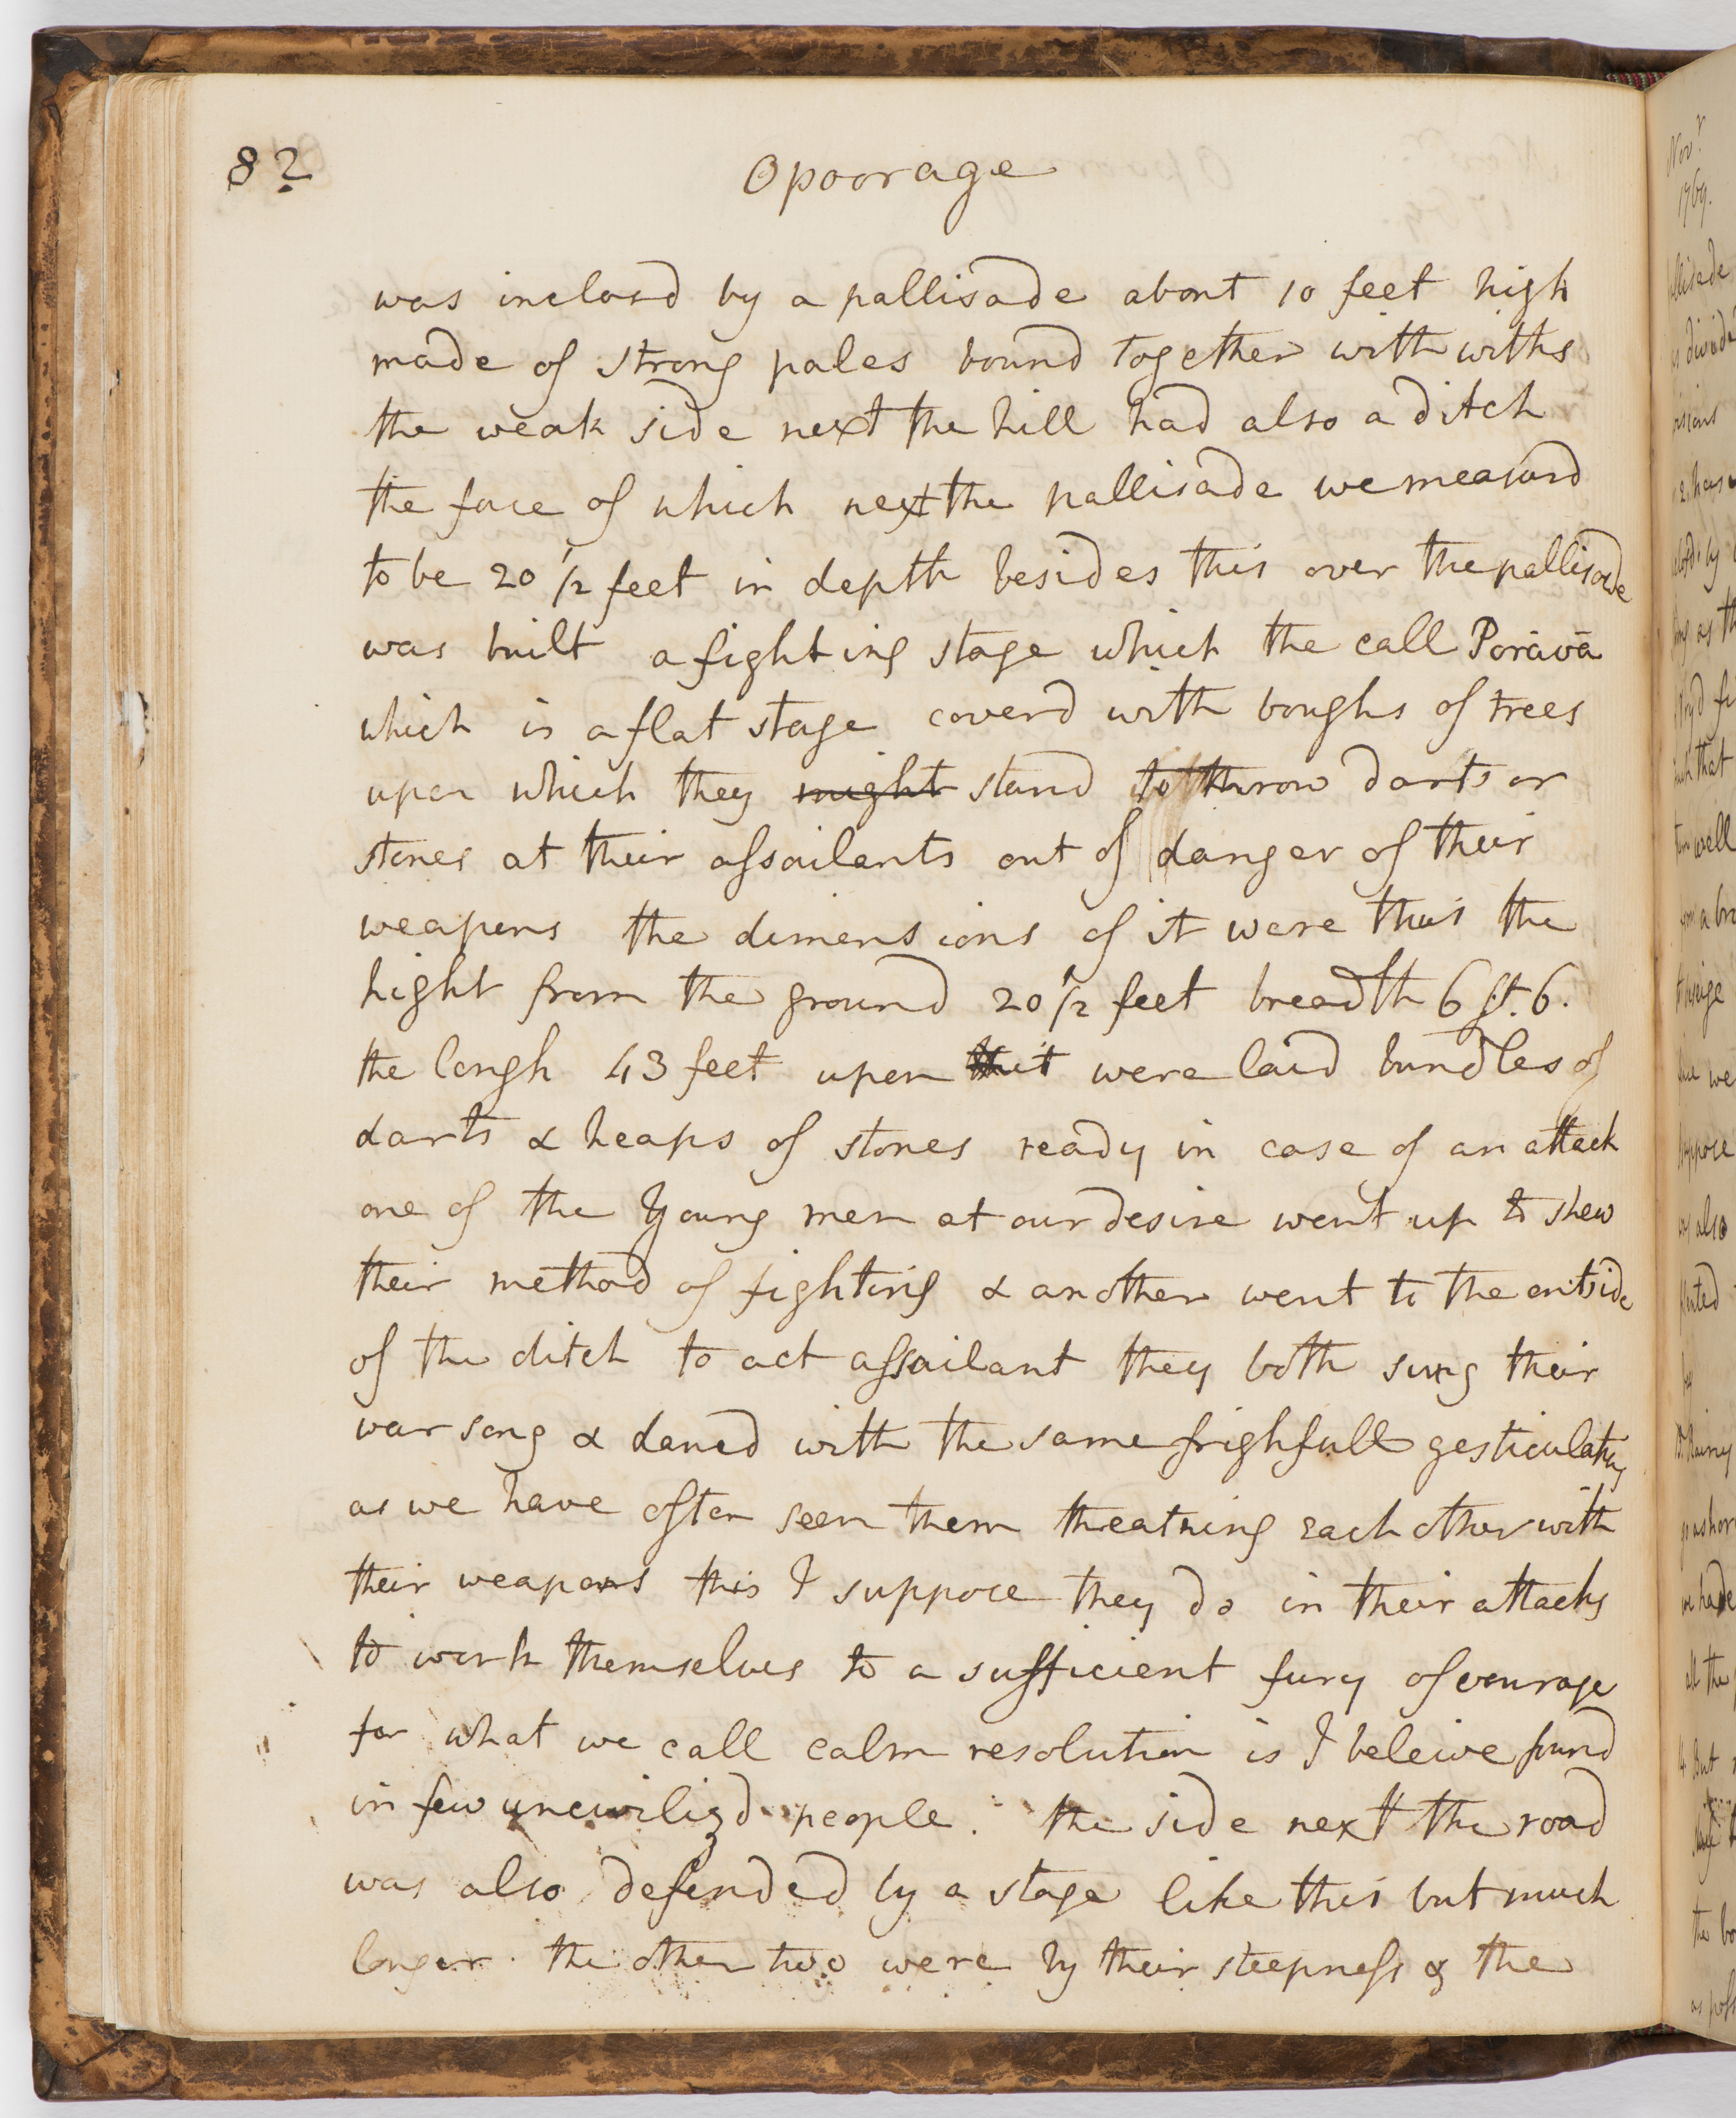 82
Opoorage
was inclosd by a pallisade about 10 feet high
made of strong pales bound together with withs
the weak side next the hill had also a ditch
the face of which next the pallisade we measurd
to be 20 1/2 feet in depth besides this over the pallisade
was built a fighting stage which the call Porāvā
which is a flat stage coverd with boughs of trees
upon which they might stand to throw darts or
stones at their assailants out of danger of their
weapons the dimensions of it were thus the
hight from the ground 20 1/2 feet breadth 6 ft. 6.
the lengh 43 feet upon it were laid bundles of
darts & heaps of stones ready in case of an attack
one of the Young men at our desire went up to shew
their method of fighting & another went to the outside
of the ditch to act assailant they both sung their
war song & dancd with the same frighfull gesticulations
as we have often seen them threatning each other with
their weapons this I suppose they do in their attacks
to work themselves to a sufficient fury of courage
for what we call calm resolution is I beleive found
in few uncivilizd people. the side next the road
was also defended by a stage like this but much
longer. the other two were by their steepness & the
Nov.r
1769.